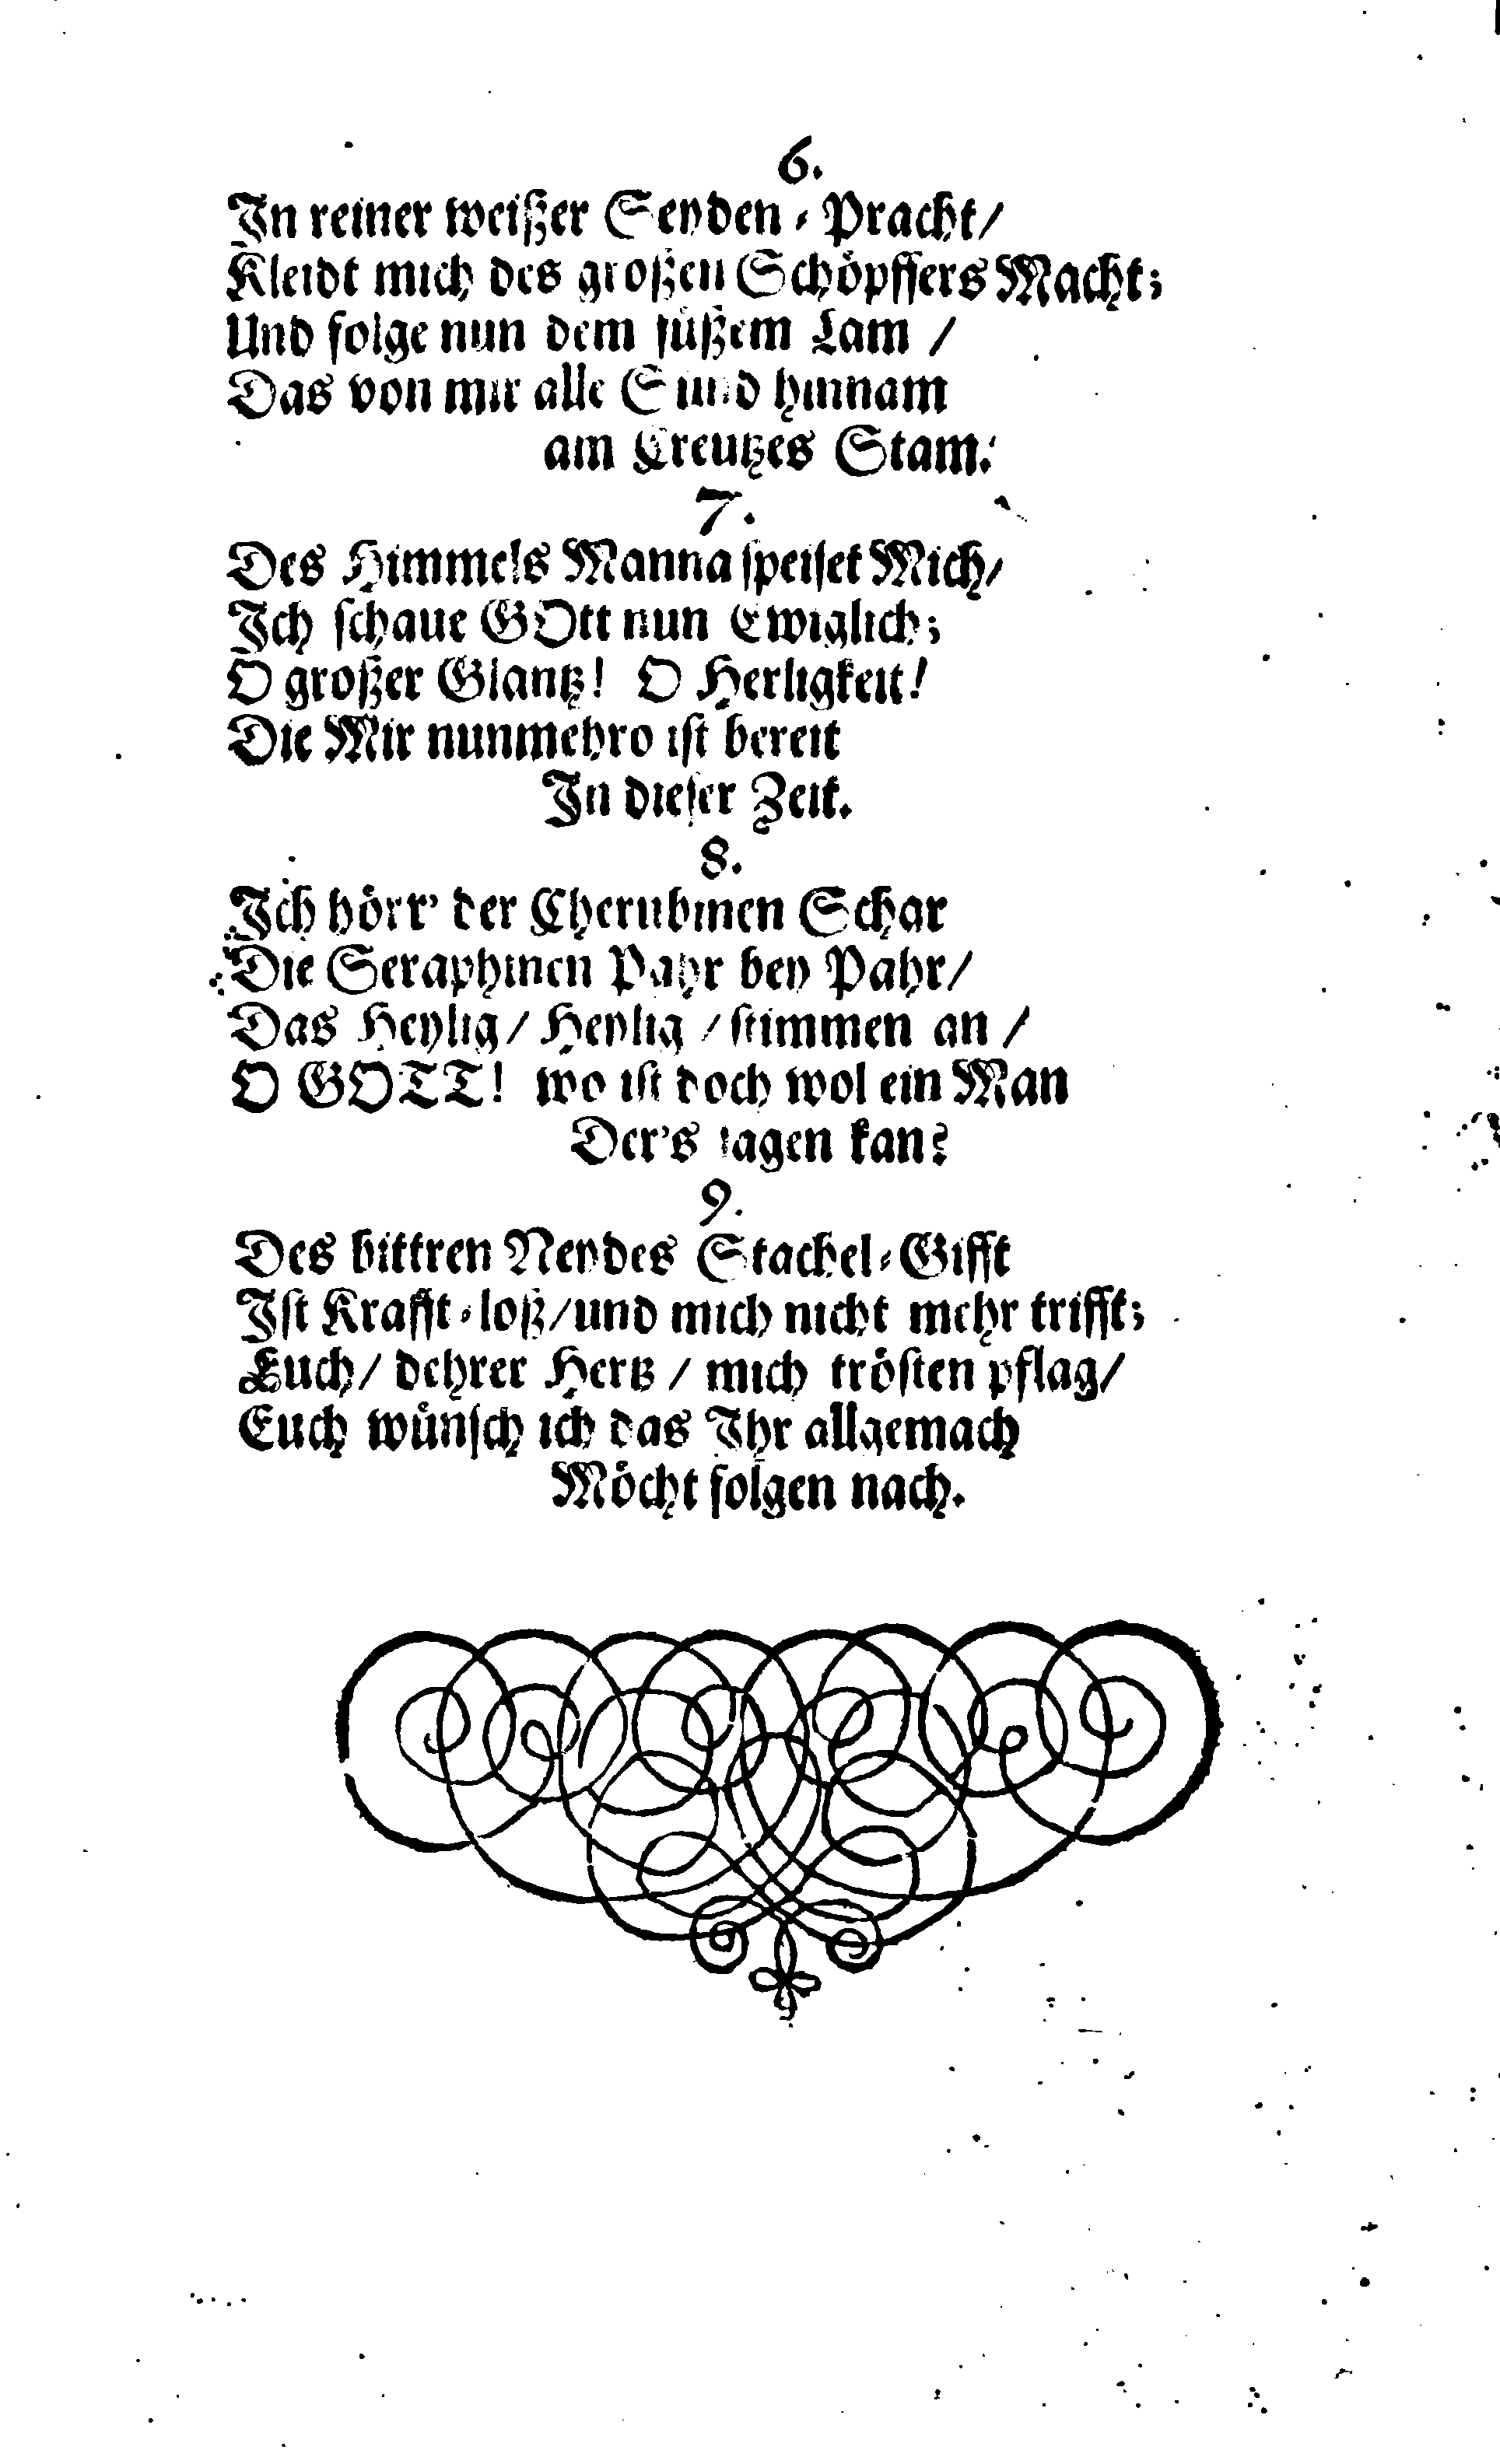 6.
In reiner weißer Seyden-Pracht/
Kleidt mich des großen Schöpffers Macht;
Und folge nun dem süßem Lam /
Das von mir alle Sünd hinnam
am Creutzes Stam.
7.
Des Himmels Manna speiset Mich/
Ich schaue GOtt nun Ewiglich;
O großer Glantz! O Herligkeit!
Die Mir nunmehro ist bereit
In dieser Zeit.
8.
Ich hörr' der Cherubinen Schar
Die Seraphinen Pahr bey Pahr/
Das Heylig/ Heylig /stimmen an /
O GOTT! wo ist doch wol ein Man
Der's sagen kan?
9.
Des bittren Neydes Stachel-Gifft
Ist Krafft-loß/und mich nicht mehr trifft;
Euch/ dehrer Hertz / mich trösten pflag/
Euch wünsch ich das Ihr allgemach
Möcht folgen nach.